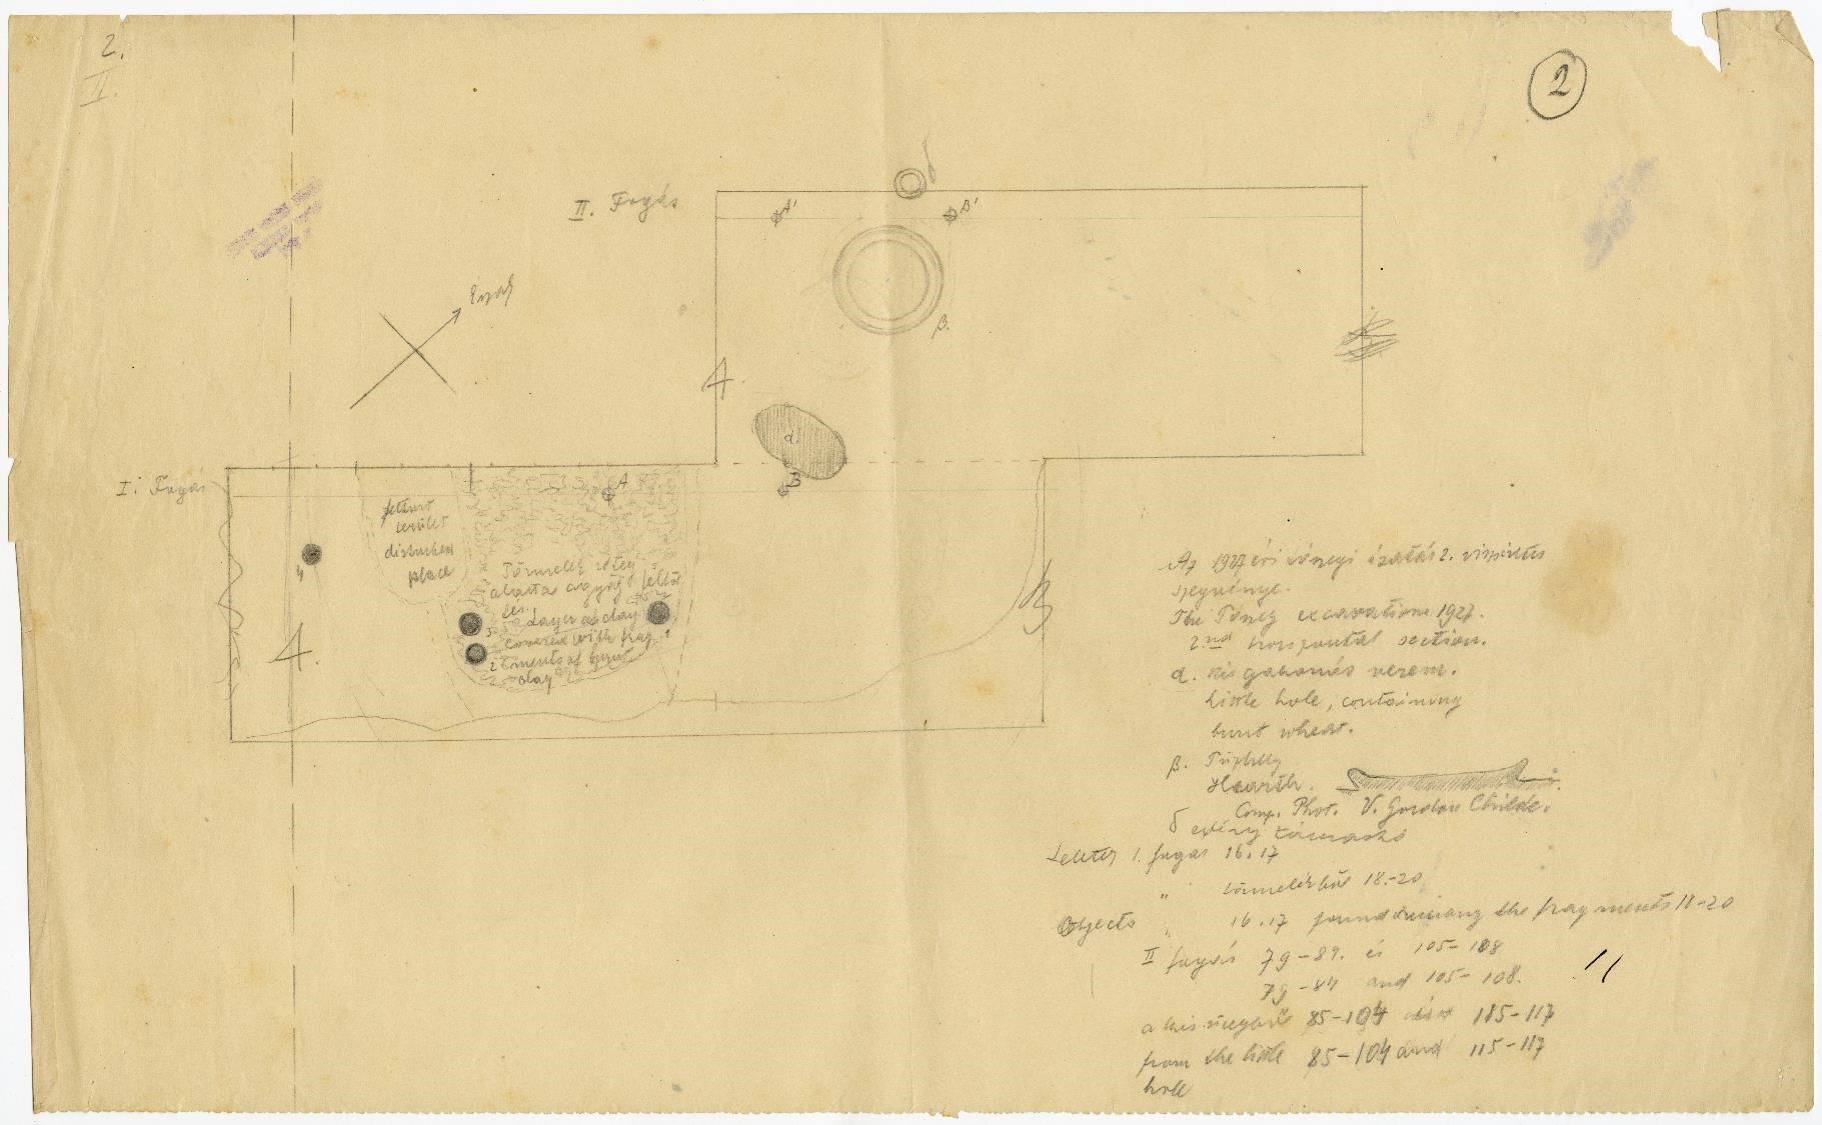 2.
II.
2
II. Fogás
A'
B'
β.
A
α
B
I. Fogás
A
feltúrt
terület
disturbed
place
4
Törmelék réteg
alatta agyag
Layer of clay
covered with frag
ments of burnt
clay
3
2
1
A.
B
Az 1927 évi ásatás 2. vizszintes
szegvénye.
The Tószeg excavation 1927.
2.nd horizontal section.
α. kis gabonás verem.
little hole, containing
burnt wheat.
β. Tüzhely
Hearth.
Comp. Phot. V. Gordon Childe.
δ edény
Leletek 1. fogás 16.17
" törmelékből 18.-20
Objects " 16.17 found among the fragments 18-20
II fogás 79-84. és 105-108
79-84 and 105-108.
a kis üregből 85-104 és 115-117
from the little 85-104 and 115-117
hole